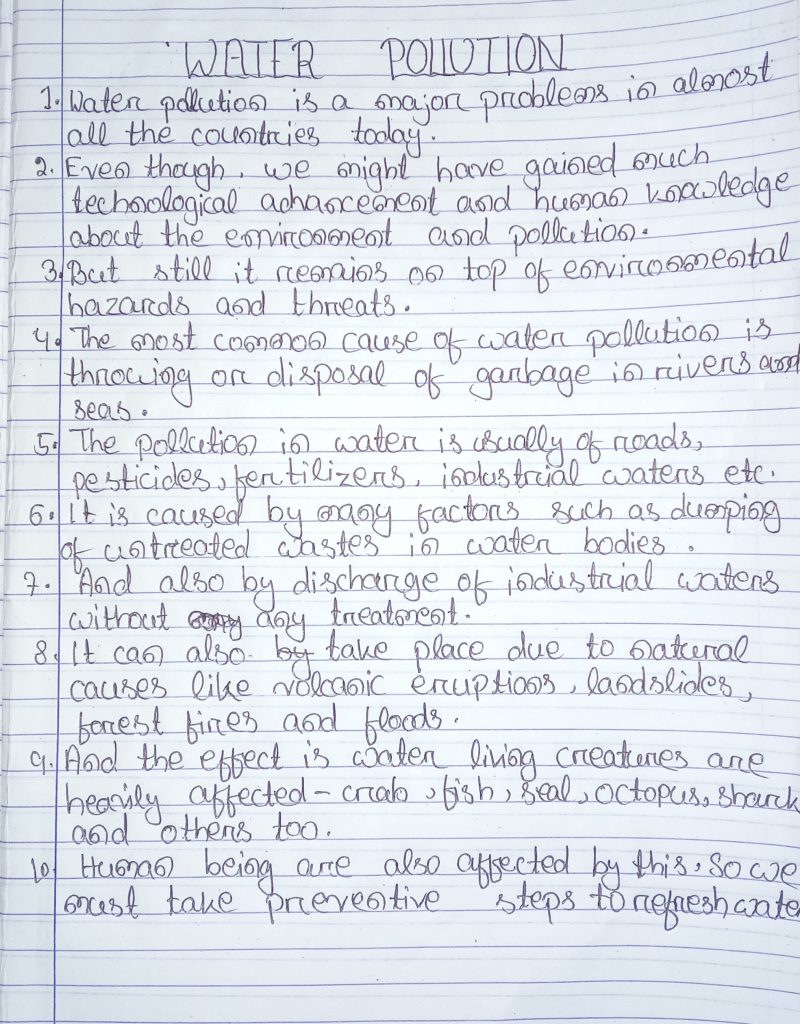 WATER POLLUTION
1. Water pollution is a major problems in almost
all the countries today.
2. Even though, we might have gained much
technological advancement and human knowledge
about the environment and pollution.
3. But still it remains on top of environmental
hazards and threats.
4. The most common cause of water pollution is
throwing or disposal of garbage in rivers and
seas.
5. The pollution in water is usually of roads,
pesticides, fertilizers, industrial waters etc.
6. It is caused by many factors such as dumping
of untreated wastes in water bodies.
7. And also by discharge of industrial waters
without any treatment.
8. It can also by take place due to natural
causes like volcanic eruptions, landslides,
forest fires and floods.
9. And the effect is water living creatures are
heavily affected - crab, fish, seal, octopus, shark
and others too.
10. Human being are also affected by this, So we
must take preventive steps to refresh water